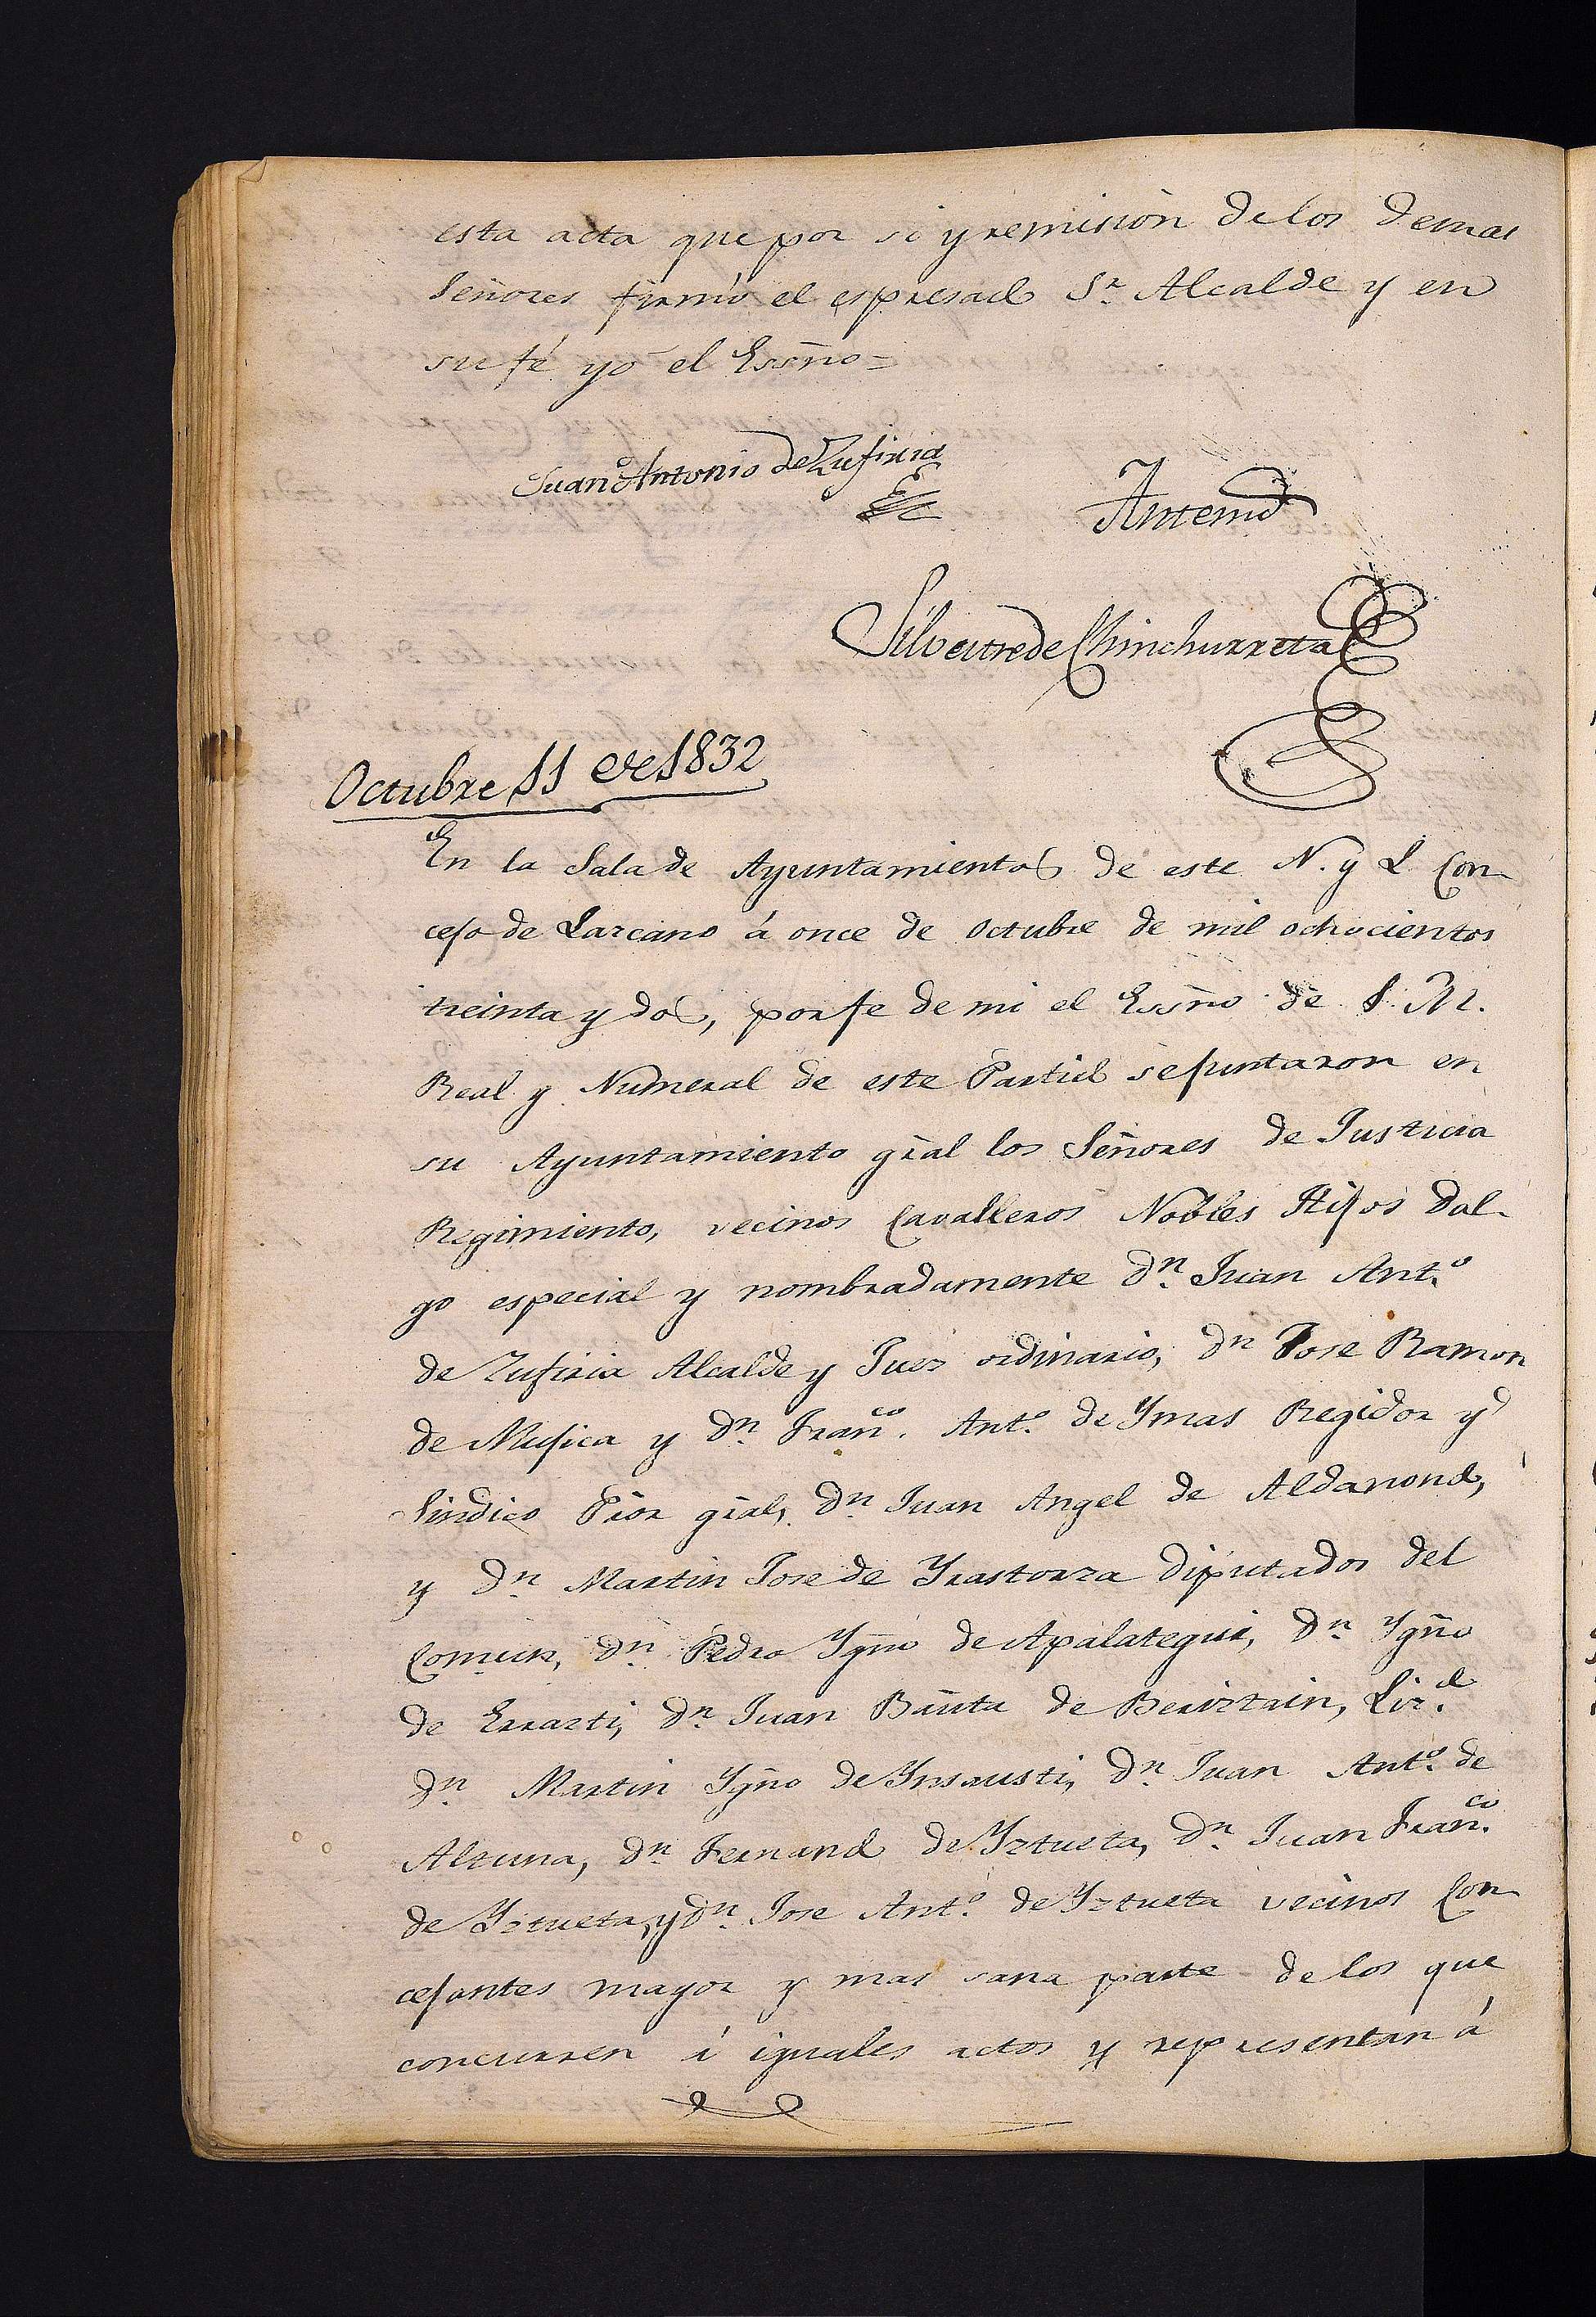 esta acta que por si y remisión de los demas
Señores firmó el espresado Sr. Alcalde y en
su fé yo el Essño=
Juan Antonio de Zufiria
Antemi
Silvestre de Chinchurreta
Octubre 11 de 1832
En la Sala de Ayuntamientos de este N. y L. Con-
cejo de Lazcano á once de octubre de mil ochocientos
treinta y dos, por fe de mi el Essño de S. M.
Real y Numeral de este Partido se juntaron en
su Ayuntamiento gral los Señores de Justicia
Regimiento, vecinos Cavalleros Nobles Hijos dal-
go especial y nombradamente Dn. Juan Anto.
de Zufiria Alcalde y Juez ordinario, Dn Jose Ramon
de Mujica y Dn. Franco. Anto. de Ymas Regidor y
Sindico Pror gral, Dn. Juan Angel de Aldanondo,
y Dn. Martin Jose de Yrastorza Diputados del
Comun, Dn. Pedro Ygño de Apalategui, Dn. Ygño
de Errazti, Dn. Juan Bauta de Beriztain, Lizdo.
Dn. Martin Ygño de Ynsausti, Dn. Juan Anto. de
Alzuna, Dn. Fernando de Yztueta, Dn. Juan Franco.
de Yztueta, y Dn. Jose Anto. de Yztueta vecinos Con-
cejantes mayor y mas sana parte de los que
concurren á iguales actos y representan á